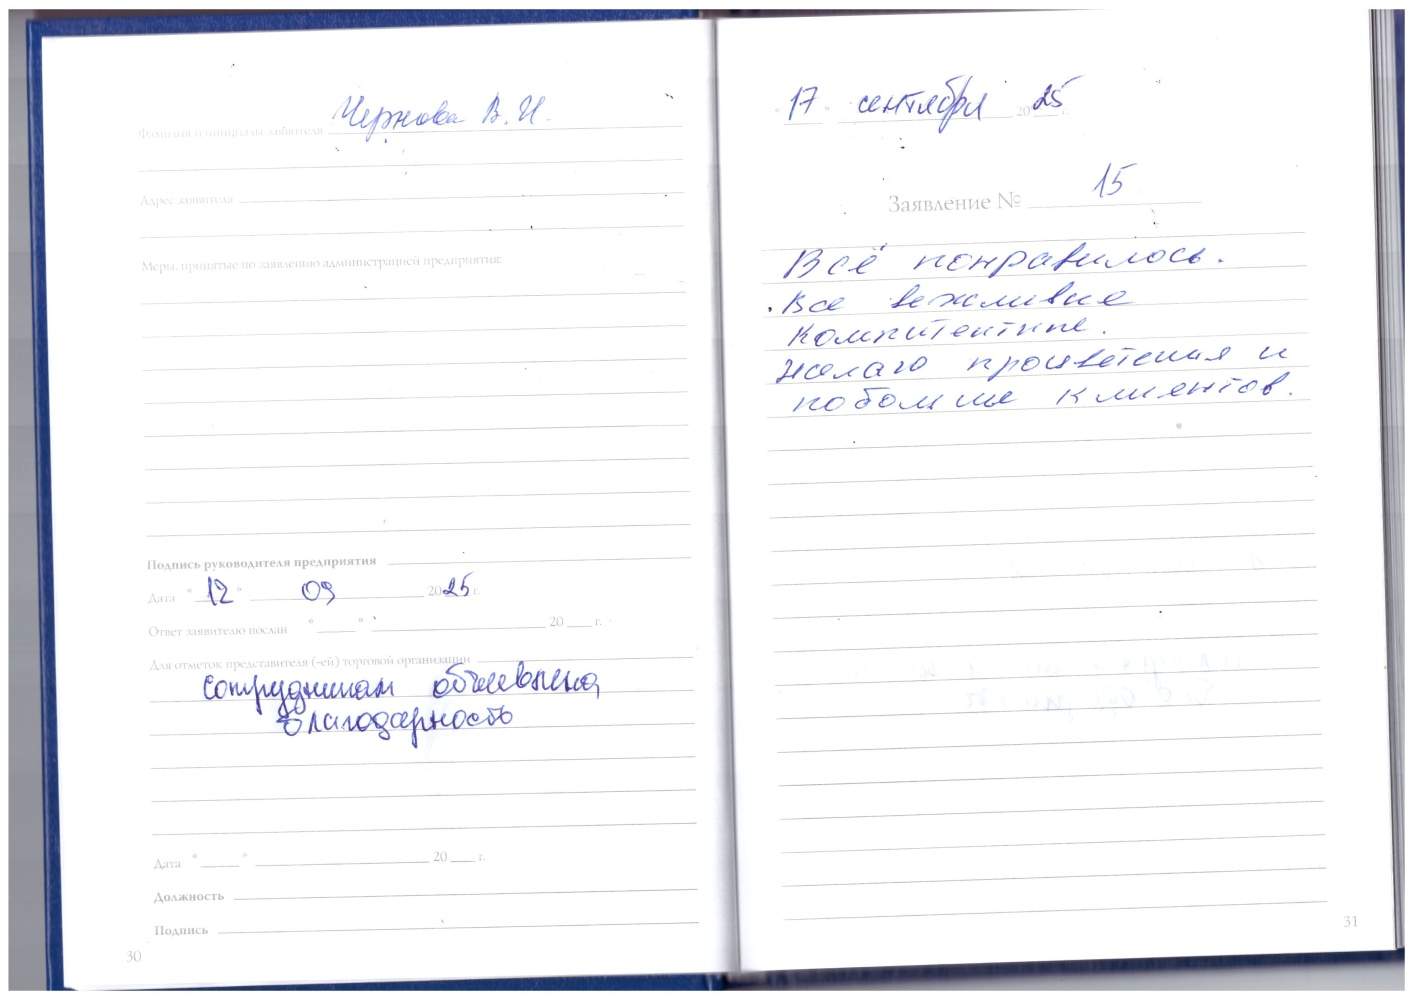 Фамилия и инициалы заявителя Чернова В. И.
Адрес заявителя
Меры, принятые по заявлению администрацией предприятия:
Подпись руководителя предприятия
Дата "12" 09 2025 г.
Ответ заявителю послан " " 20 г.
Для отметок представителя (-ей) торговой организации
сотрудникам объявлена
благодарность
Дата " " 20 г.
Должность
Подпись
30
"17" сентября 2025 г.
Заявление № 15
Всё понравилось.
Все вежливые
компитентные.
Желаю процветения и
побольше клиентов.
31